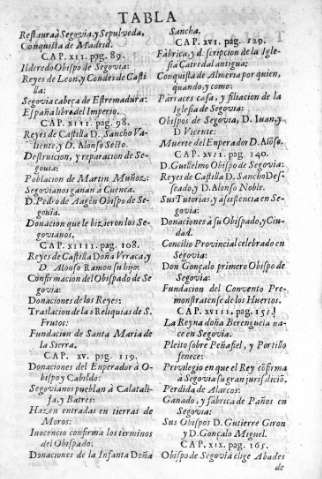 TABLA
Restaura à Segovia, y Sepulveda.
Conquista de Madrid.
CAP. XII. pag. 89.
Ilderedo Obispo de Segovia:
Reyes de Leon, y Condes de Casti
lla:
Segovia cabeça de Estremadura:
España libre del Imperio.
CAP. XIII. pag. 98.
Reyes de Castilla D. Sancho Va-
liente, y D. Alonso Sesto.
Destruicion, y reparacion de Se-
govia:
Poblacion de Martin Muñoz:
Segovianos ganan à Cuenca.
D. Pedro de Aagen Obispo de Se-
govia.
Donacion que le hizieron los Se-
govianos,
CAP. XIIII. pag. 108.
Reyes de Castilla Doña Vrraca, y
D. Alonso Ramon su hijo:
Confirmacion del Obispado de Se
govia:
Donaciones de los Reyes:
Traslacion de las Reliquias de S.
Frutos:
Fundacion de Santa Maria de
la Sierra.
CAP. XV. pag. 119.
Donaciones del Emperador à O-
bispo y Cabildo.
Segovianos pueblan à Calatali-
fa, y Batres:
Hazen entradas en tierras de
Moros:
Inocencio confirma los terminos
del Obispado:
Donaciones de la Infanta Doña
Sancha.
CAP. XVI. pag. 129.
Fabrica, y descripcion de la Igle-
sia Catredal antigua:
Conquista de Almeria por quien,
quando, y como:
Parraces casa, y filiacion de la
Iglesia de Segovia:
Obispos de Segovia, D. Iuan, y
D. Vicente:
Muerte del Emperador D. Alõso.
CAP. XVII. pag. 140.
D. Guillelmo Obispo de Segovia:
Reyes de Castilla D. Sancho Des-
seado, y D. Alonso Noble.
Sus Tutorias, y assistencia en Se-
govia:
Donaciones à su Obispado, y Ciu-
dad.
Concilio Provincial celebrado en
Segovia:
Don Gonçalo primero Obispo de
Segovia:
Fundacion del Convento Pre-
monstratense de los Huertos.
CAP. XVIII. pag. 151.
La Reyna doña Berenguela na-
ce en Segovia.
Pleito sobre Peñafiel, y Portillo
fenece:
Privilegio en que el Rey cõfirma
à Segovia su gran jurisdiciõ.
Perdida de Alarcos:
Ganado, y fabrica de Paños en
Segovia:
Sus Obispos D. Gutierre Giron
y D. Gonçalo Miguel.
CAP. XIX. pag. 165.
Obispo de Segovia elige Abades
de